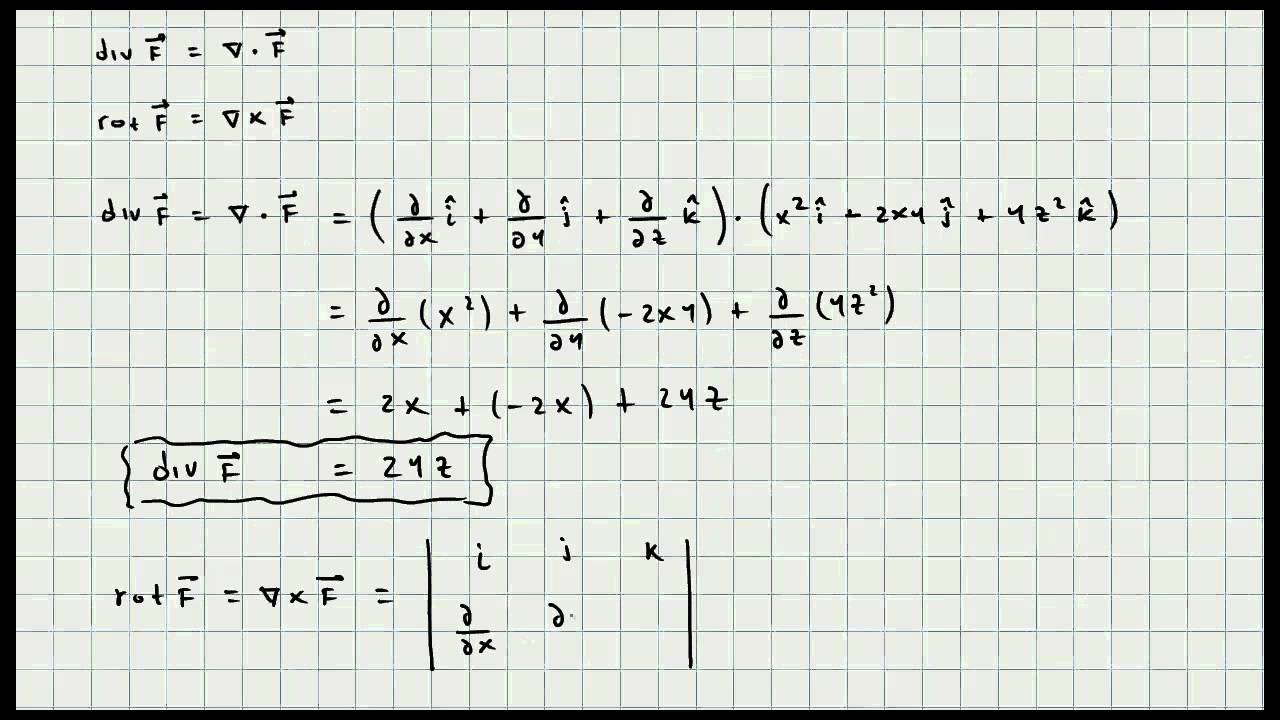 div F⃗ = ∇ · F⃗
rot F⃗ = ∇ × F⃗
div F⃗ = ∇ · F⃗ = (∂/∂x î + ∂/∂y ĵ + ∂/∂z k̂) · (x² î - 2xy ĵ + yz² k̂)
= ∂/∂x (x²) + ∂/∂y (-2xy) + ∂/∂z (yz²)
= 2x + (-2x) + 2yz
div F⃗ = 2yz
rot F⃗ = ∇ × F⃗ = | i j k
∂/∂x ∂ |